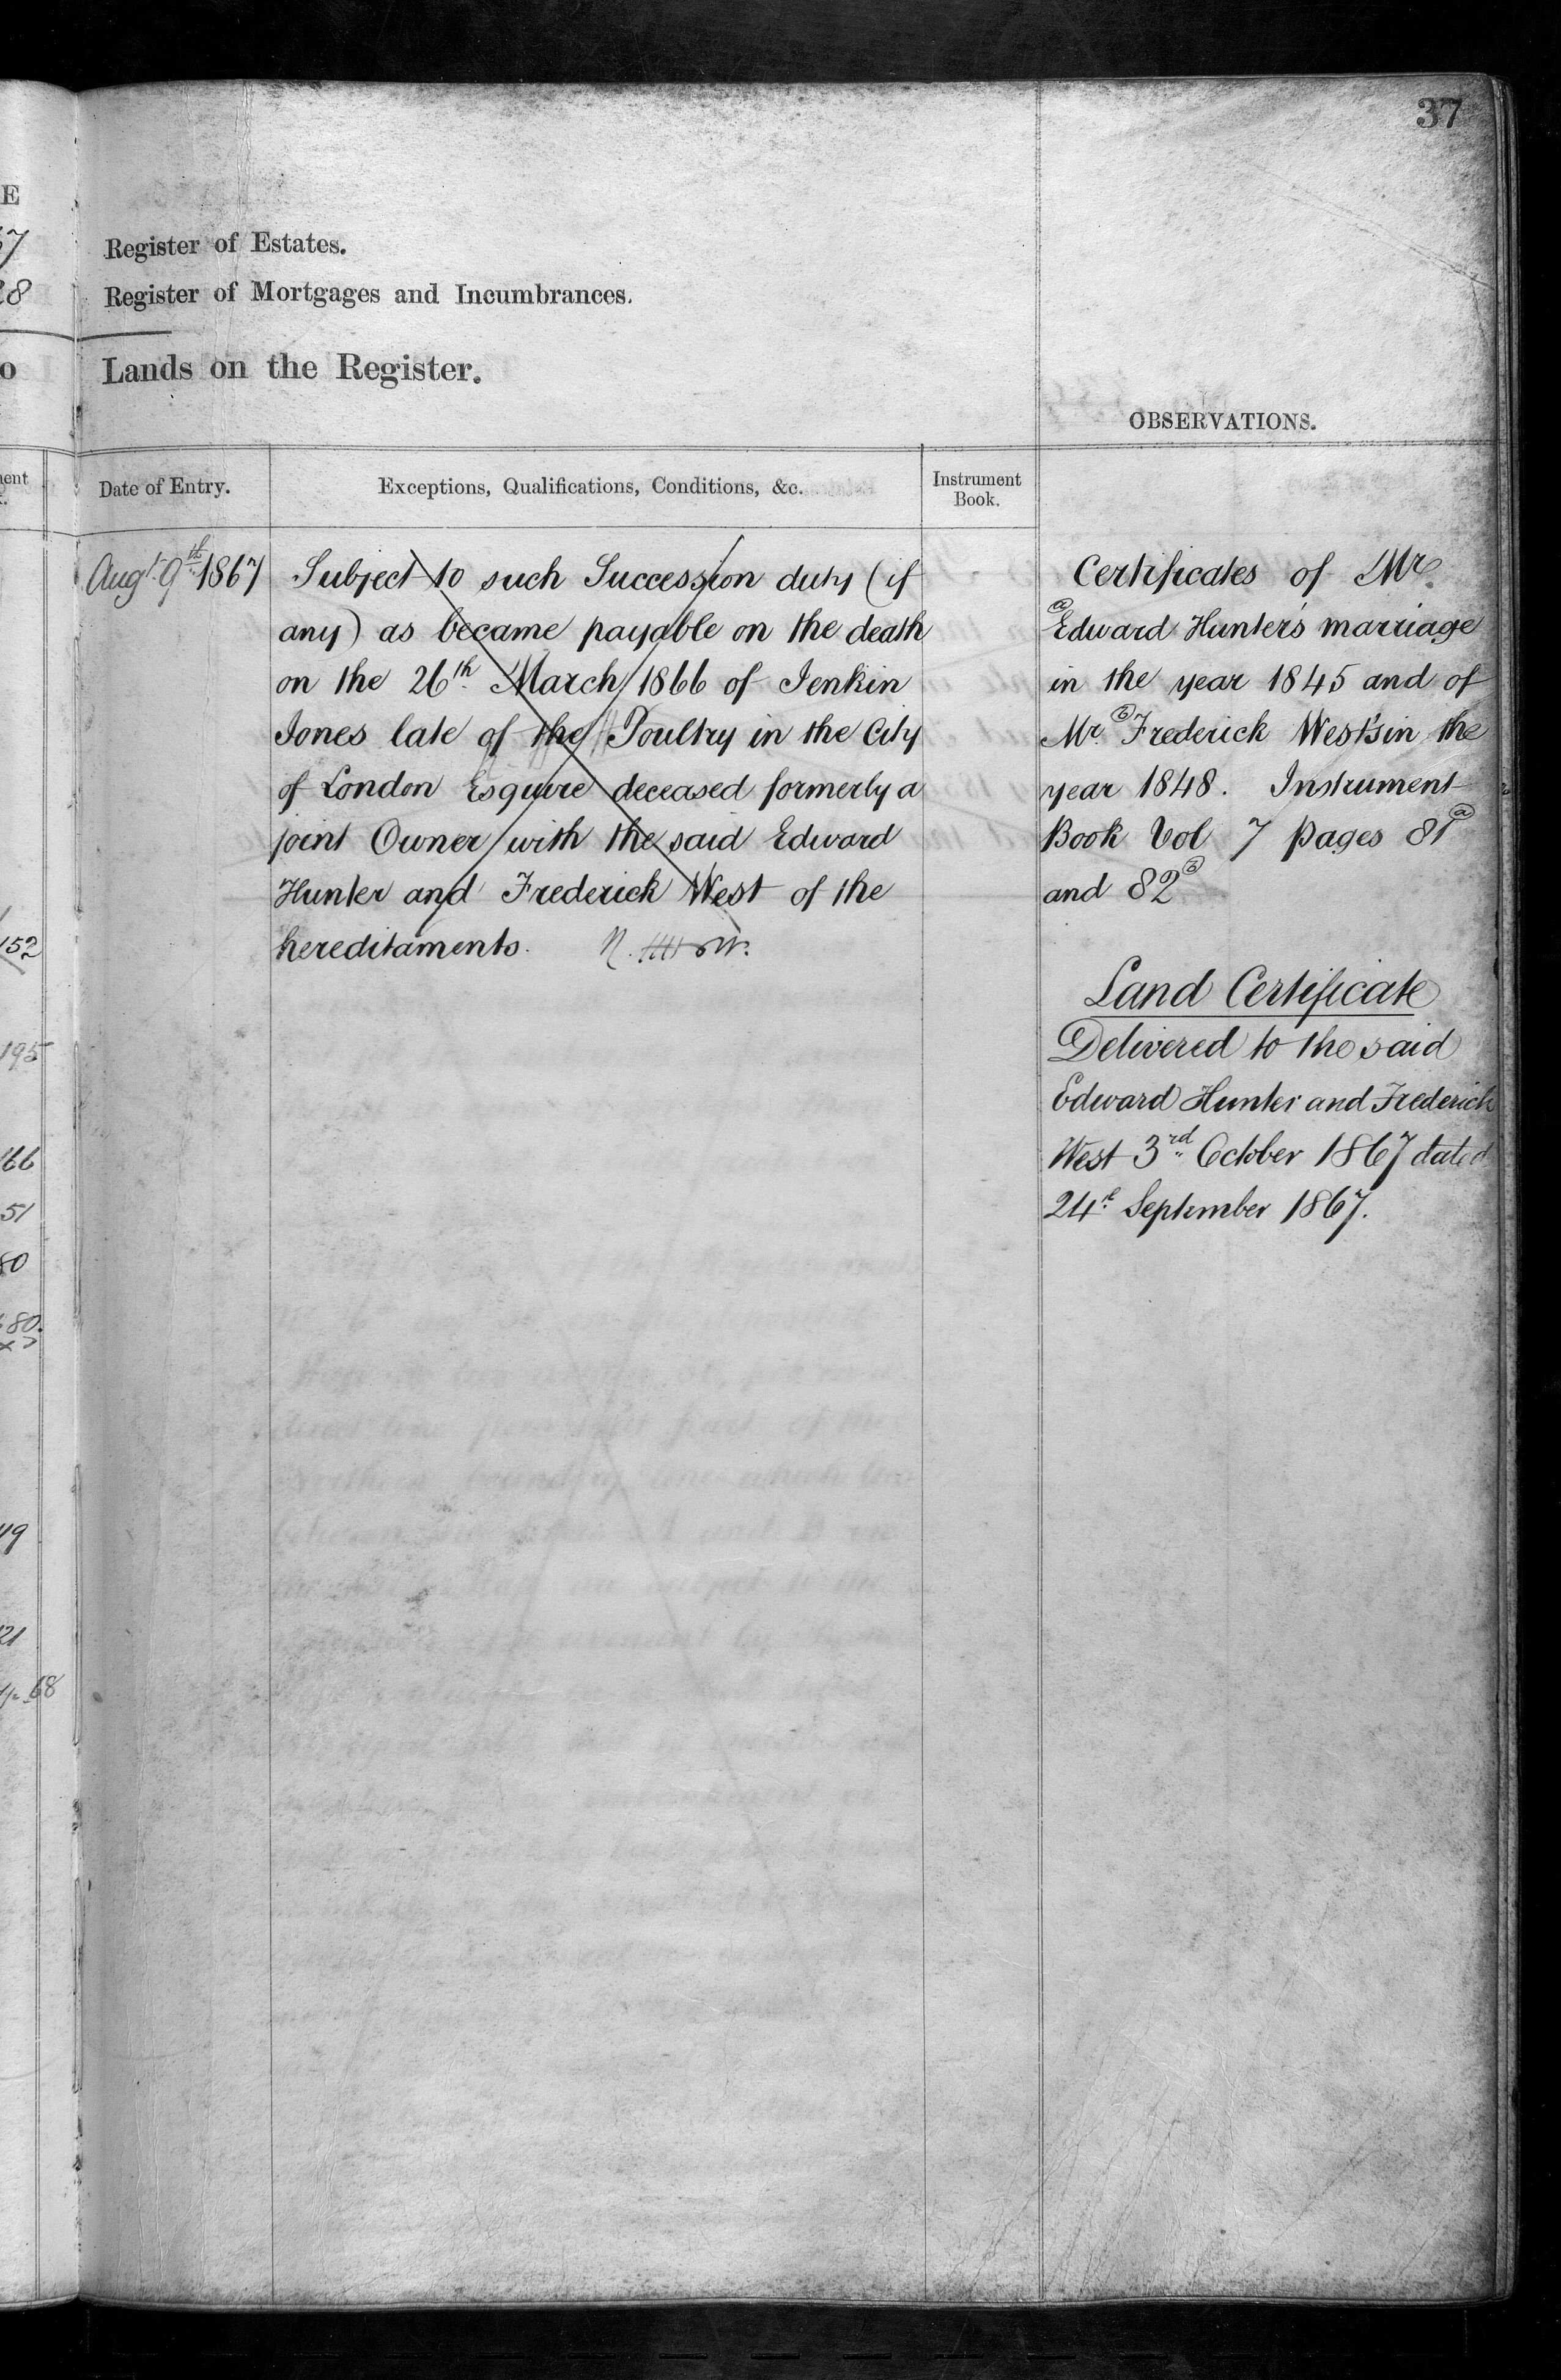 37
E
67
28
Register of Estates.
Register of Mortgages and Incumbrances.
Lands on the Register.
OBSERVATIONS.
Date of Entry.
Exceptions, Qualifications, Conditions, &c.
Instrument
Book.
Augt. 9th 1867
Subject to such Succession duty (if
any) as became payable on the death
on the 26th March 1866 of Jenkin
Jones late of the Poultry in the City
of London Esquire deceased formerly a
joint Owner with the said Edward
Hunter and Frederick West of the
hereditaments.
Certificates of Mr.
(a) Edward Hunter's marriage
in the year 1845 and of
Mr. (b) Frederick West's in the
year 1848. Instrument
Book Vol 7 Pages 81 (a)
and 82 (b)
Land Certificate
Delivered to the said
Edward Hunter and Frederick
West 3rd October 1867 dated
24th September 1867.
152
195
166
51
80
80.
49
21
68